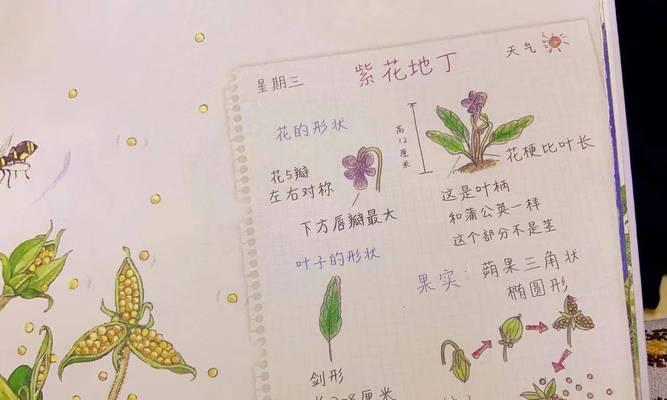 星期三
紫花地丁
天气
花的形状
花5瓣
左右对称
下方唇瓣最大
高12厘米
花梗比叶长
这是叶柄
和蒲公英一样
这个部分不是茎
叶子的形状
剑形
果实：蒴果三角状
椭圆形